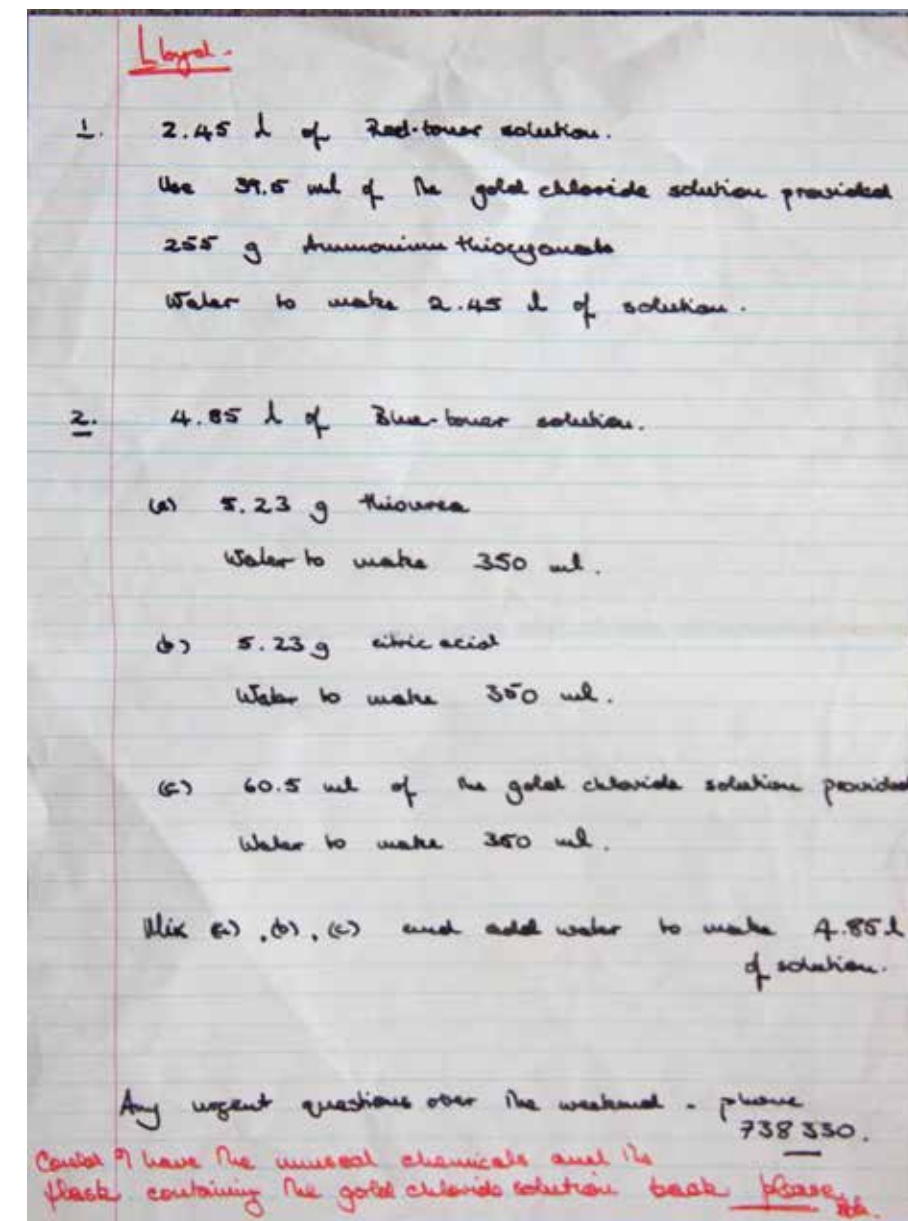 Lloyd.
1. 2.45 l of Red-toner solution.
Use 39.5 ml of the gold chloride solution provided
255 g Ammonium thiocyanate
Water to make 2.45 l of solution.
2. 4.85 l of Blue-toner solution.
(a) 5.23 g thiourea
Water to make 350 ml.
(b) 5.23 g citric acid
Water to make 350 ml.
(c) 60.5 ml of the gold chloride solution provided
Water to make 350 ml.
Mix (a), (b), (c) and add water to make 4.85 l
of solution.
Any urgent questions over the weekend - phone
738 330.
Could I have the unused chemicals and the
flask containing the gold chloride solution back please